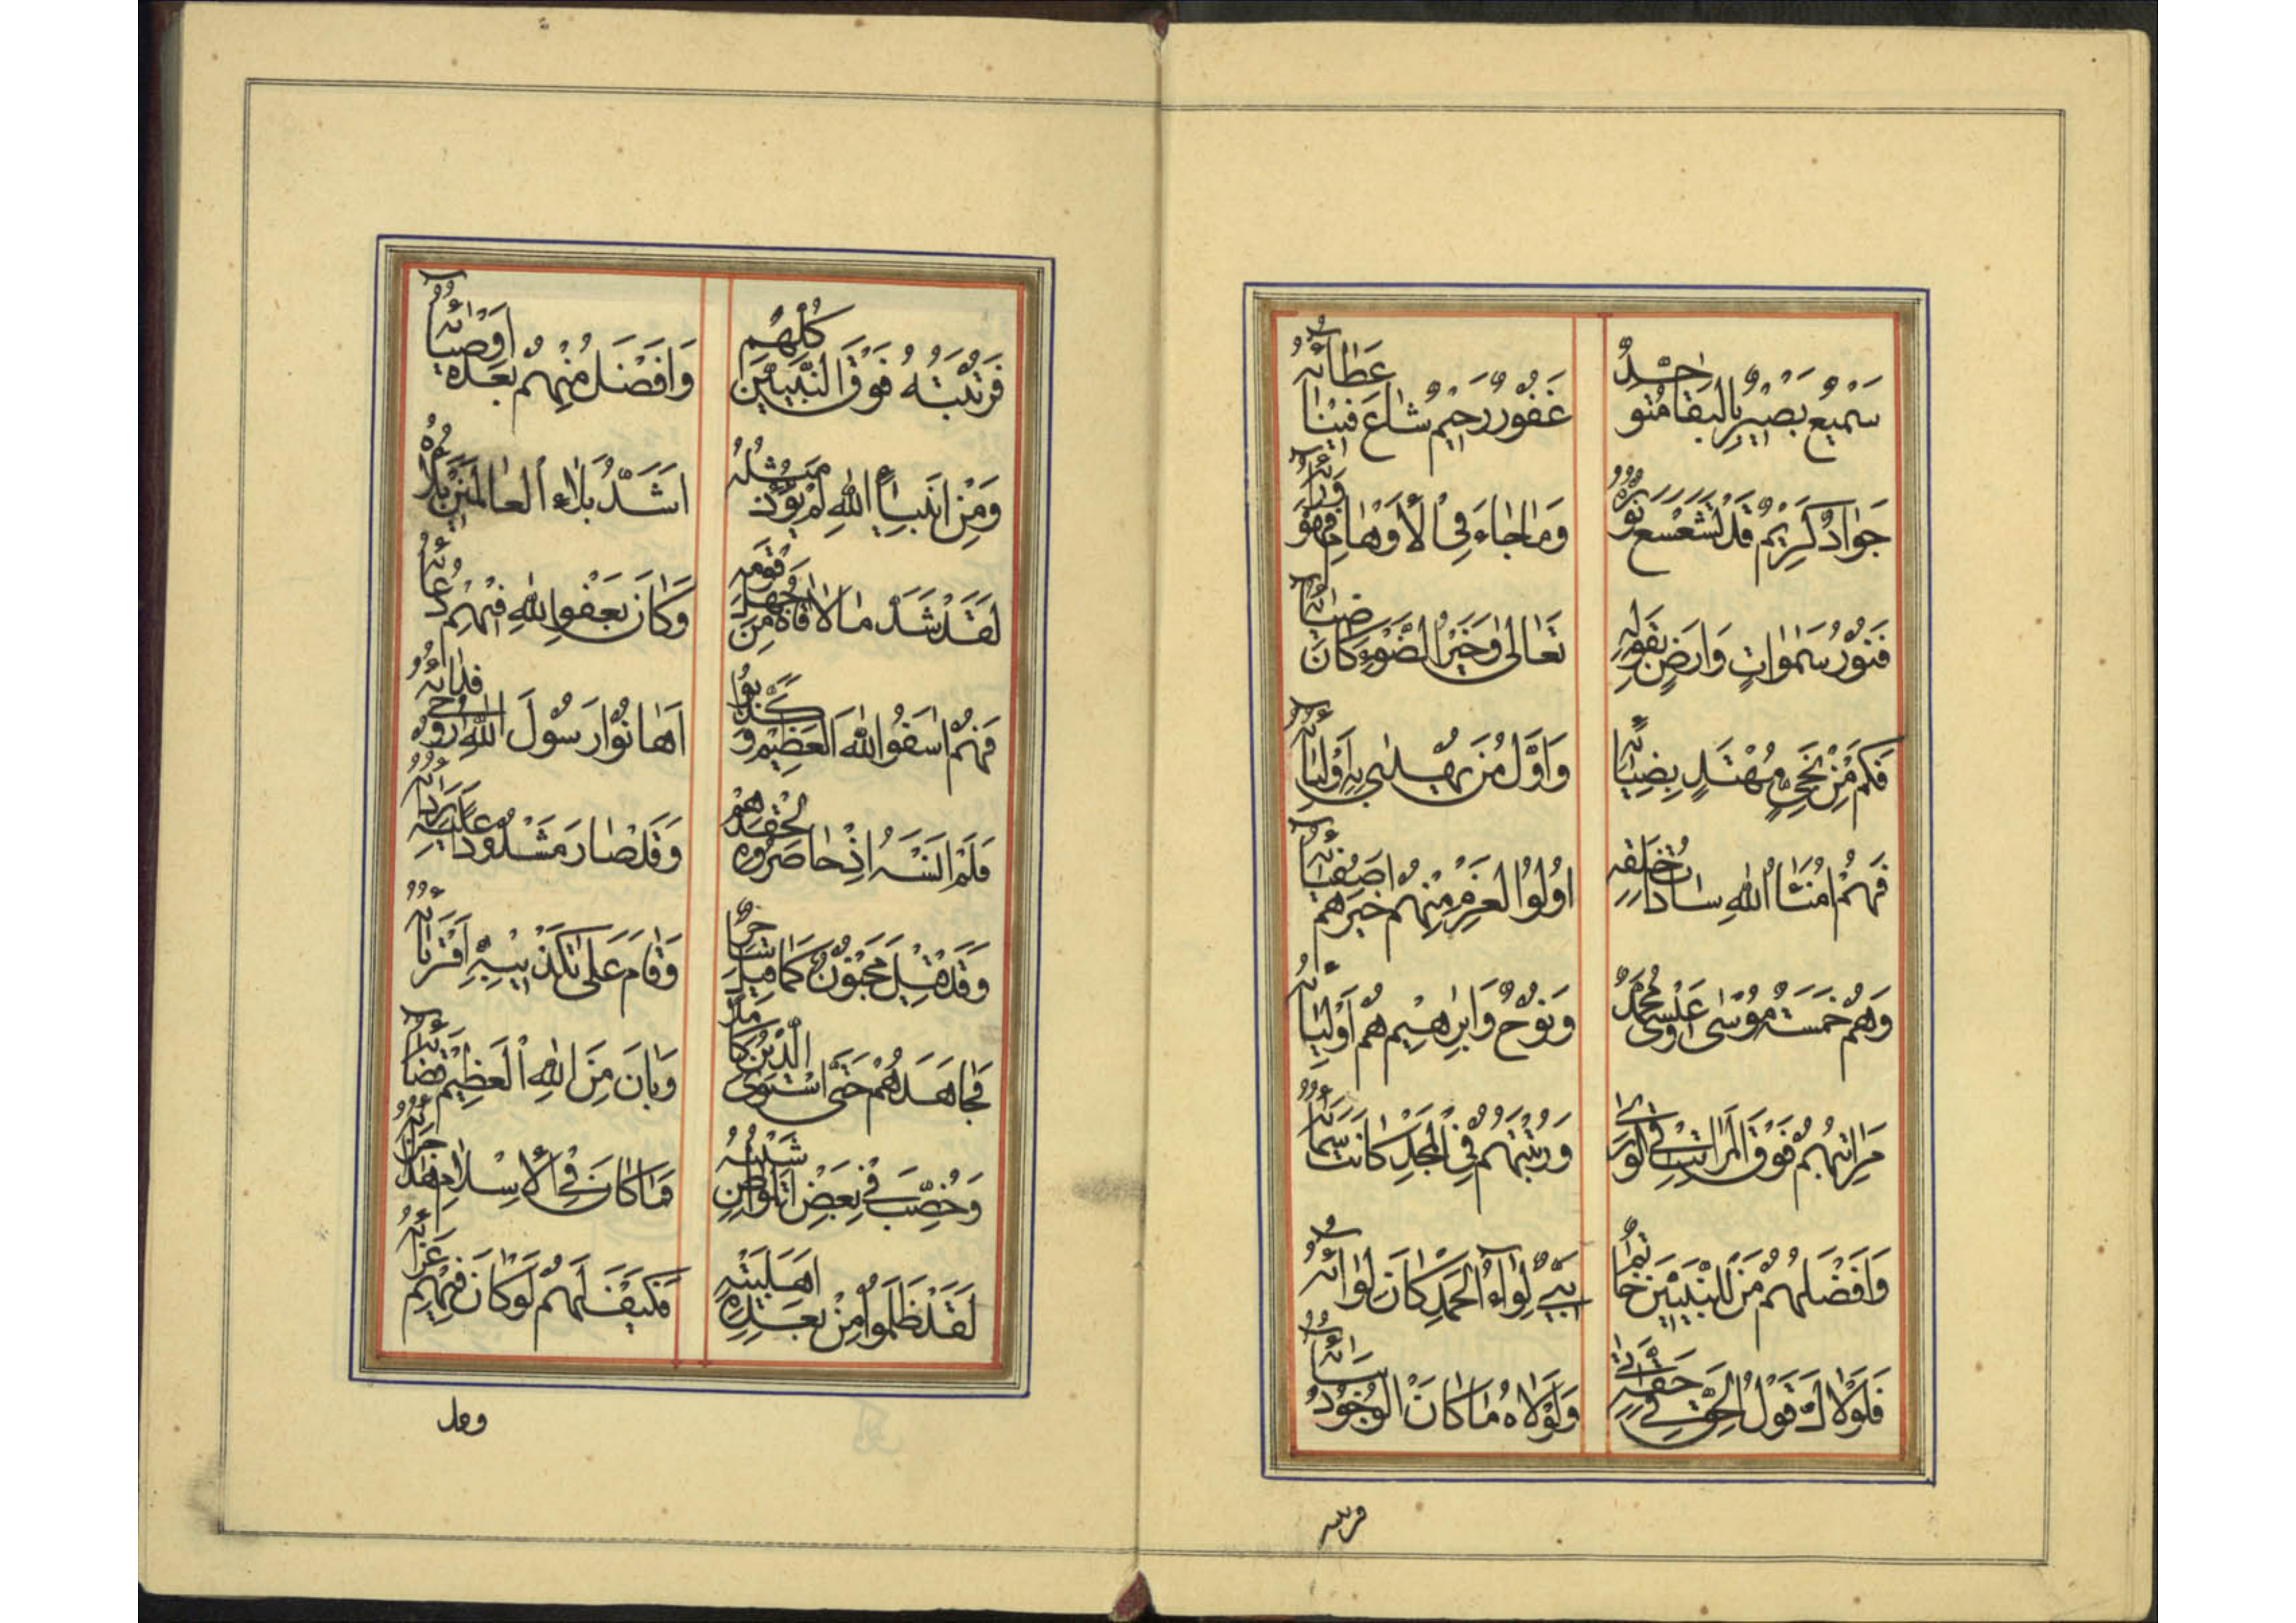 سَمِيعٌ بَصِيرٌ بِالبَقَا مُتَوَحِّدٌ
غَفُورٌ رَحِيمٌ شَاعَ فِينَا عَطَائُهُ
جَوَادٌ كَرِيمٌ قَدْ تَشَعْشَعَ نُورُهُ
وَمَا جَاءَ فِي الْأَوْهَامِ فَهْوَ وَرَائُهُ
فَنُورُ سَمٰوَاتٍ وَارَضٍ بِقَوْلِهِ
تَعَالىٰ وَخَيْرُ الضَّوْءِ كَانَ ضِيَائُهُ
فَكَمْ مِنْ نَجِيٍّ مُهْتَدٍ بِضِيَائِهِ
وَاَوَّلُ مَنْ يُهْدٰى بِهِ اَوْلِيَائُهُ
فَهُمْ اُمَنَاءُ اللهِ سَادَاتُ خَلْقِهِ
اُولُوا الْعَزْمِ مِنْهُمْ خَيْرُهُمْ اَصْفِيَائُهُ
وَهُمْ خَمْسَةٌ مُوسٰى وَعِيسٰى مُحَمَّدٌ
وَنُوحٌ وَاِبْرٰهِيمُ هُمْ اَوْلِيَائُهُ
مَرَاتِبُهُمْ فَوْقَ الْمَرَاتِبِ فِي الْوَرٰى
وَرُتْبَتُهُمْ فِي الْمَجْدِ كَانَتْ سَمَائُهُ
وَاَفْضَلُهُمْ مَنْ لِلنَّبِيِّينَ خَاتِمًا
نَبِيٌّ لِوَاءُ الْحَمْدِ كَانَ لِوَائُهُ
فَلَوْلَاكَ قَوْلُ الْحَقِّ فِي حَقِّهِ اَتٰى
وَلَوْلَاهُ مَا كَانَ الْوُجُودُ سَمَائُهُ
فرتبته
فَرُتْبَتُهُ فَوْقَ النَّبِيِّينَ كُلِّهِمْ
وَاَفْضَلُ مِنْهُمْ بَعْدَهُ اَوْصِيَائُهُ
وَمِنْ اَنْبِيَاءِ اللهِ لَمْ يُؤْذَ مِثْلُهُ
اَشَدُّ بَلَاءِ الْعَالَمِينَ بَلَائُهُ
لَقَدْ شَدَّ مَا لَاقَاهُ مِنْ جَهْلِ قَوْمِهِ
وَكَانَ بِعَفْوِ اللهِ فِيهِمْ دُعَائُهُ
فَهُمْ اَسَفُوا اللهَ الْعَظِيمَ وَكَذَّبُوا
اَهَانُوا رَسُولَ اللهِ رُوحِي فِدَائُهُ
فَلَمْ اَنْسَهُ اِذْ حَاصَرُوهُ لِحِقْدِهِمْ
وَقَدْ صَارَ مَشْدُودًا عَلَيْهِ رِدَائُهُ
وَقَدْ قِيلَ مَجْنُونٌ كَمَا قِيلَ شَاعِرٌ
وَقَامَ عَلىٰ تَكْذِيبِهِ اَقْرَبَائُهُ
فَجَاهَدَهُمْ حَتّٰى اسْتَوَى الدِّينُ كَامِلًا
وَبَانَ مِنَ اللهِ الْعَظِيمِ قَضَائُهُ
وَخُضِّبَ فِي بَعْضِ الْمَوَاطِنِ شَيْبُهُ
فَمَا كَانَ فِي الْاِسْلَامِ هٰذَا جَزَائُهُ
لَقَدْ ظَلَمُوا مِنْ بَعْدِهِ اَهْلَ بَيْتِهِ
فَكَيْفَ لَهُمْ لَوْ كَانَ فِيهِمْ
وقد